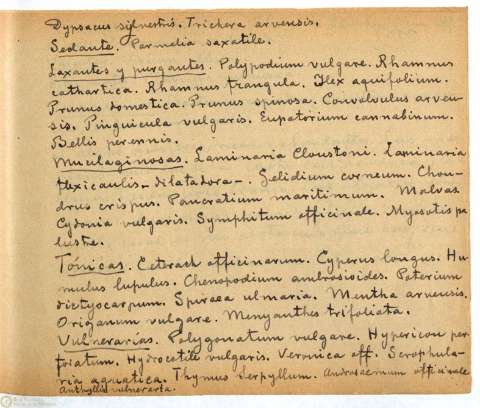 Dypsacus sylvestris. Trichera arvensis.
Sedante. Parmelia saxatile.
Laxantes y purgantes. Polypodium vulgare. Rhamnus
cathartica. Rhamnus frangula. Ilex aquifolium.
Prunus domestica. Prunus spinosa. Convolvulus arven-
sis. Pinguicula vulgaris. Eupatorium cannabinum.
Bellis perennis.
Mucilaginosas. Laminaria Cloustoni. Laminaria
flexicaulis - dilatadora -. Gelidium corneum. Chon-
drus crispus. Pancratium maritimum. Malvas
Cydonia vulgaris. Symphitum officinale. Myosotis pa
lustre.
Tónicas. Ceterach officinarum. Cyperus longus. Hu
mulus lupulus. Chenopodium ambrosioides. Poterium
dictyocarpum. Spiraea ulmaria. Mentha arvensis.
Origanum vulgare. Menyanthes trifoliata.
Vulnerarias. Polygonatum vulgare. Hypericon per
foiatum. Hydrocotile vulgaris. Veronica off. Scrophula-
ria aquatica. Thymus Serpyllum. Androsaemum officinale
Anthyllis vulneraria.